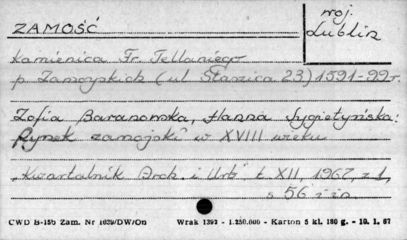 ZAMOŚĆ
woj.
Lublin
kamienica Fr. Tellaniego
p. Zamoyskich (ul Staszica 23) 1591-99r.
Zofia Baranowska, Hanna Sygietyńska:
Rynek zamojski w XVIII wieku
"Kwartalnik Arch. i Urb" t. XII, 1967, z 1,
s 56 i in.
CWD B-15b Zam. Nr 1029/DW/On Wrak 1392 - 1.250.000 - Karton 5 kl. 180 g. - 10. 1. 67